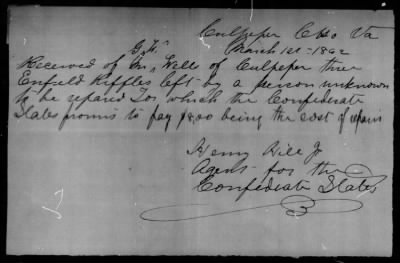 Culpeper C Ho Va
March 1st - 1862
G. H.
Received of Mr, Wells of Culpeper three
Enfield Riffles left by a person unknown
to be repaired For which the Confederate
States promis to pay $8.00 being the cost of repairs
Henry Hill Jr
Agent for the
Confederate States